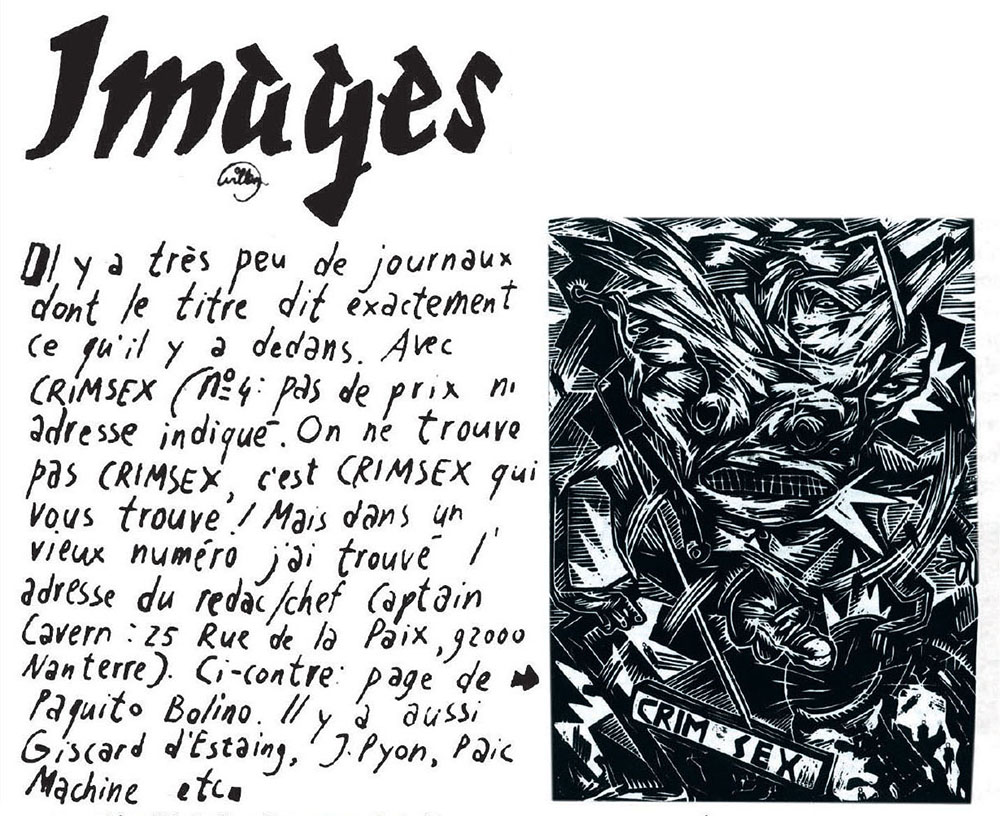 Images
Willem
Il y a très peu de journaux
dont le titre dit exactement
ce qu'il y a dedans. Avec
CRIMSEX (nº4: pas de prix ni
adresse indiqué. On ne trouve
pas CRIMSEX, c'est CRIMSEX qui
vous trouve! Mais dans un
vieux numéro j'ai trouvé l'
adresse du redac/chef Captain
Cavern : 25 Rue de la Paix, 92000
Nanterre). Ci-contre: page de
Paquito Bolino. Il y a aussi
Giscard d'Estaing, J. Pyon, Paic
Machine etc.
CRIM SEX